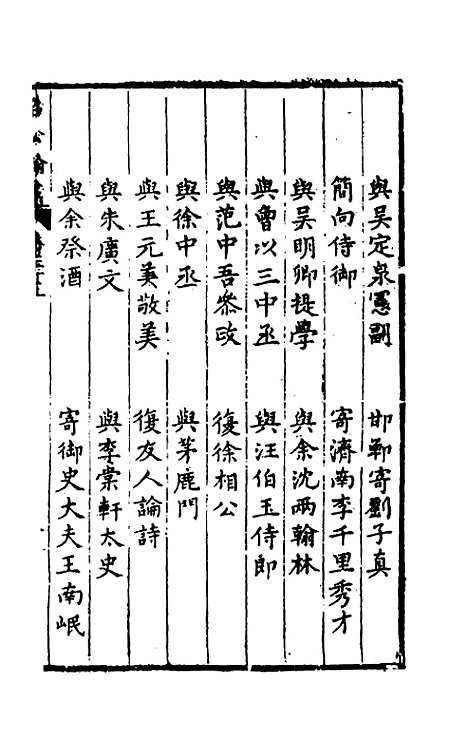 與吳定泉憲副　邯鄲寄劉子真
簡向侍御　寄濟南李千里秀才
與吳明卿提學　與余沈兩翰林
與曾以三中丞　與汪伯玉侍郎
與范中吾叅政　復徐相公
與徐中丞　與茅鹿門
與王元美敬美　復友人論詩
與朱廣文　與李棠軒太史
與余祭酒　寄御史大夫王南岷